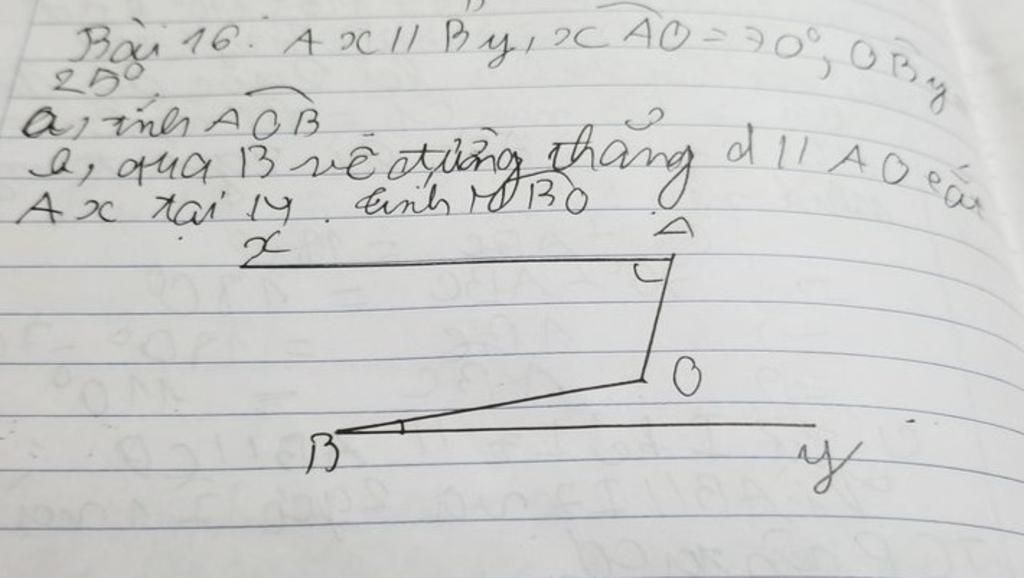 Bài 16. Ax // By, xAO = 70°, OBy
25°.
a, tính AOB
a, qua B vẽ đường thẳng d // AO cắt
Ax tại M. tính MBO
x
A
O
B
y